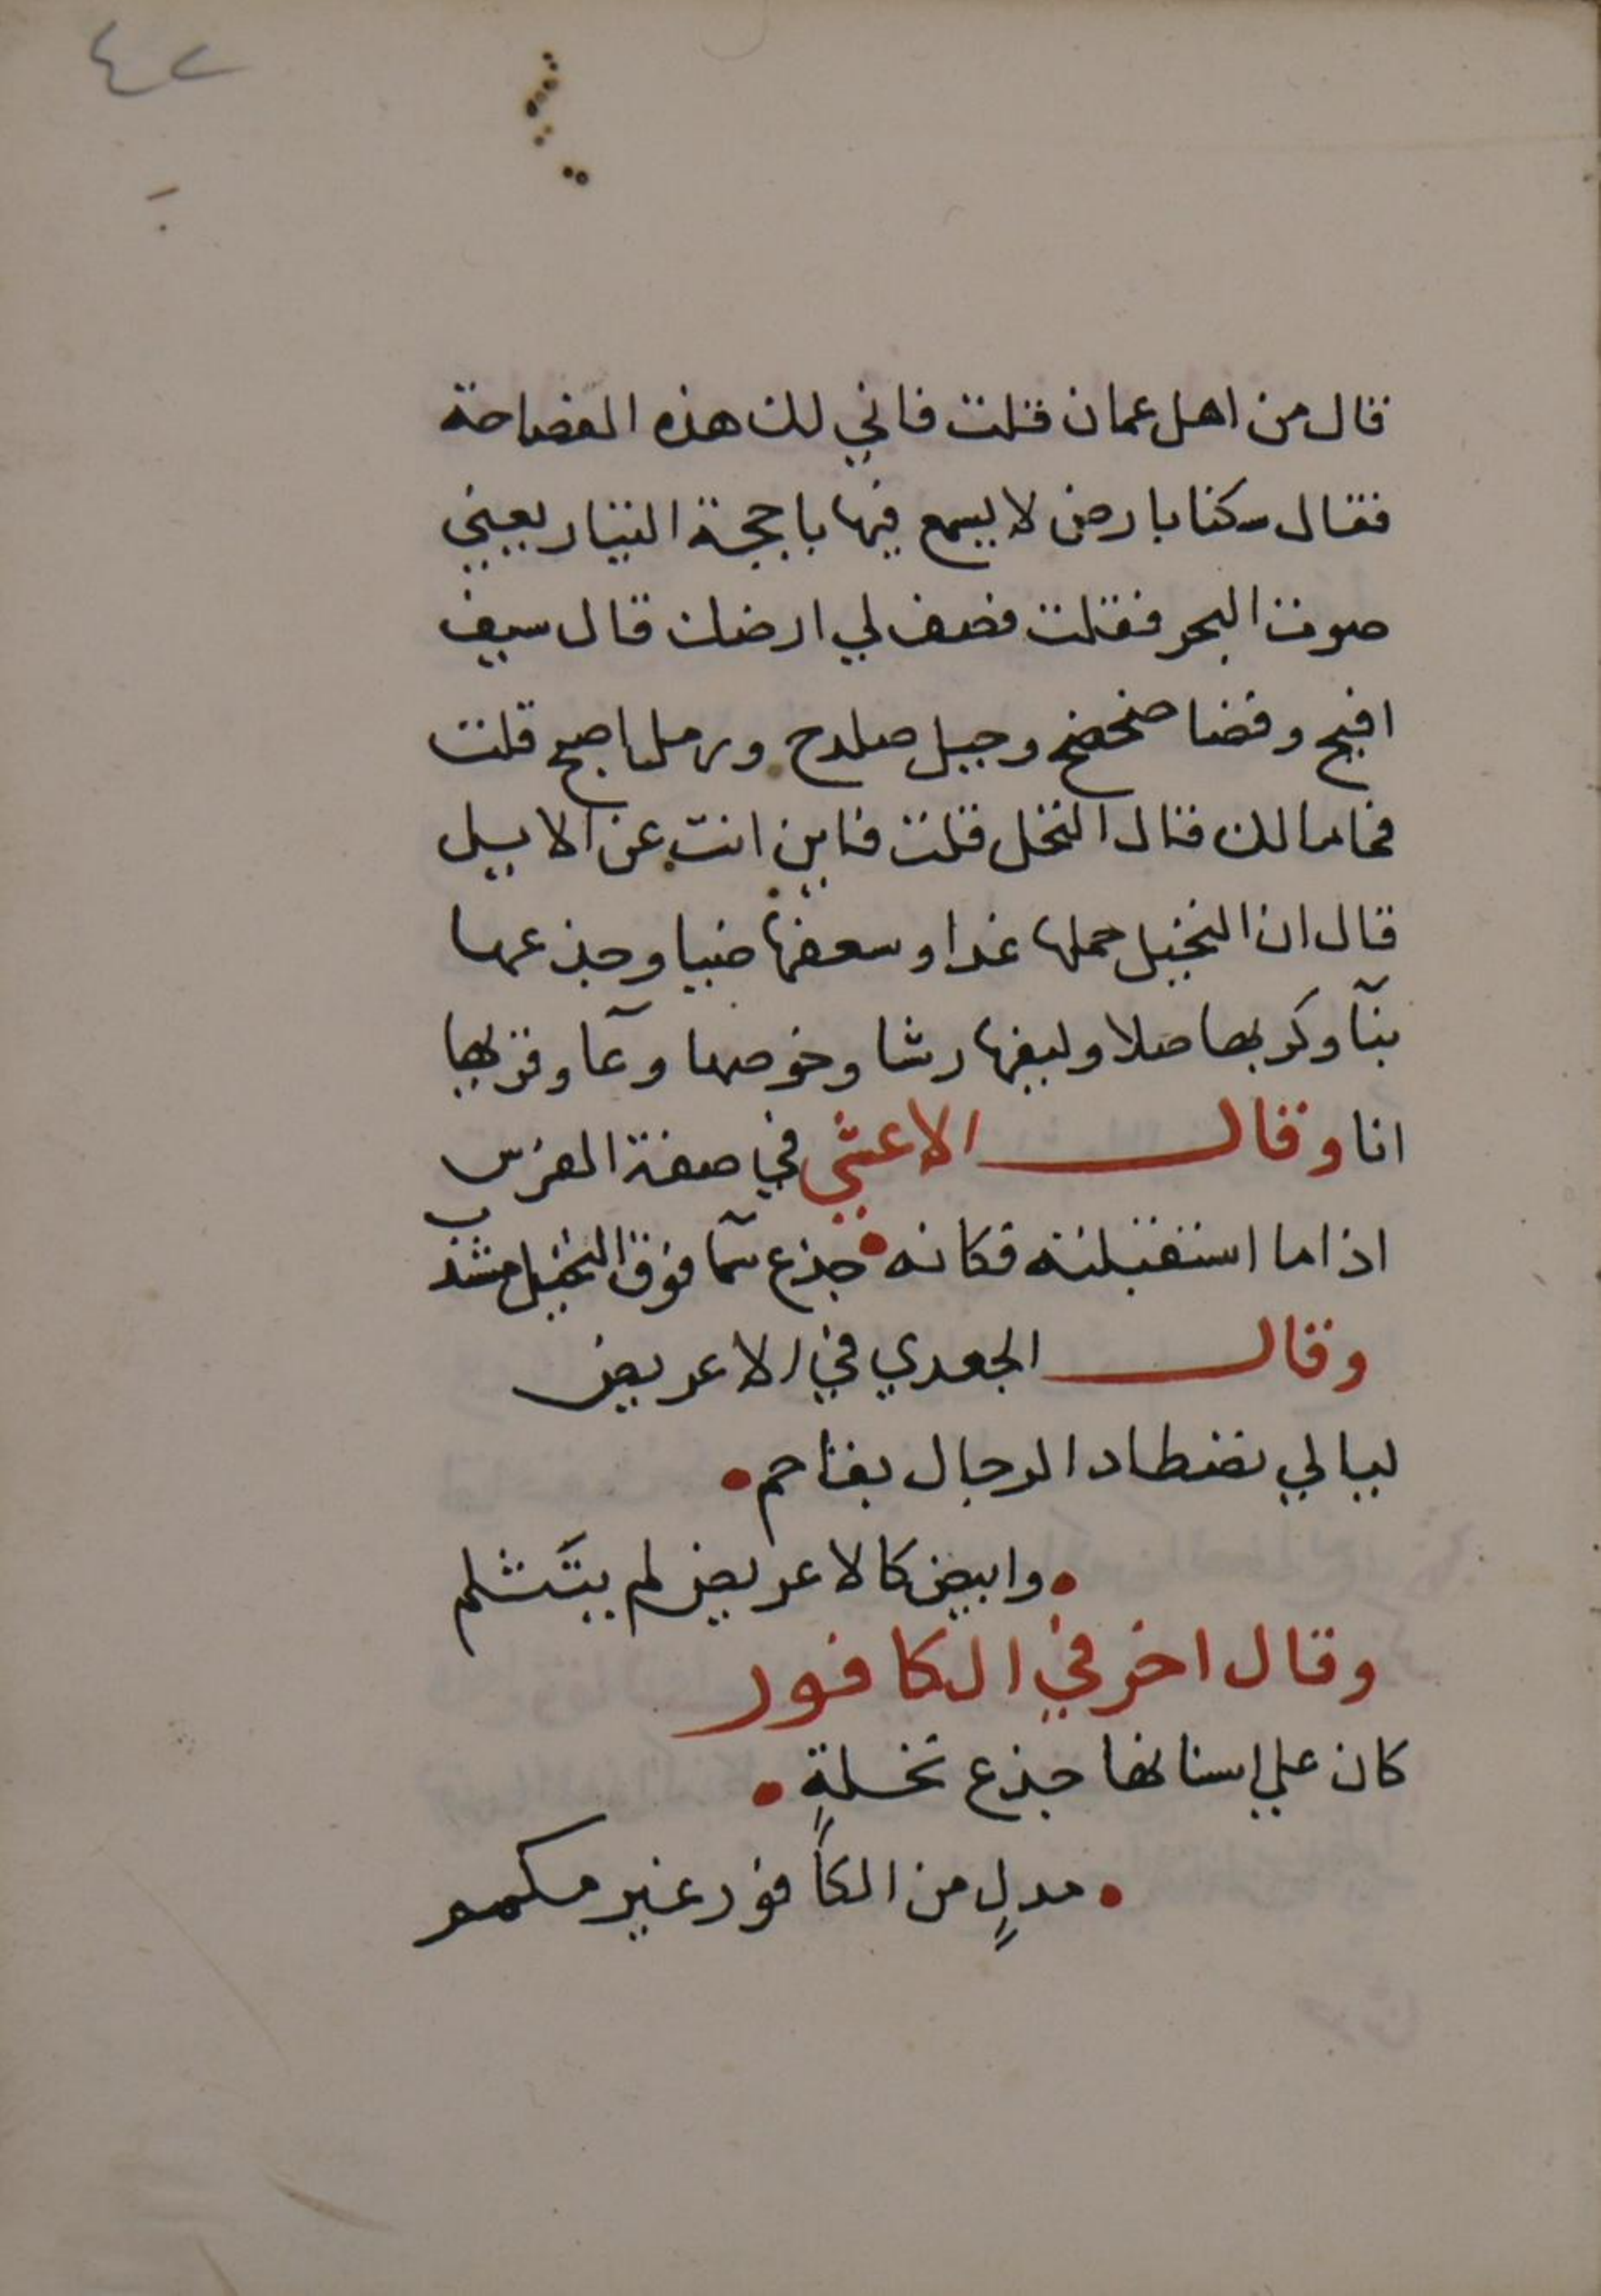 ٤٢
قال من اهل عمان قلت فاني لك هذه الفصاحة
فقال سكنا بارض لا يسمع فيها باججة التيار يعني
صوت البحر فقلت فصف لي ارضك قال سيف
افيح وفضا ضحضح وجبل صلدح ورمل اصبح قلت
فما مالك قال النخل قلت فاين انت عن الابل
قال ان النخيل حملها غدا وسعفها ضيا وجذعها
بنآ وكربها صلا وليفها رشا وخوصها وعآ وقربها
انا وقال الاعشي في صفة الفرس
اذا ما استقبلته فكانه جذع سمآ فوق النخيل مشذب
وقال الجعدي في الاعريض
ليالي تصطاد الرجال بفاحم
وابيض كالاعريض لم يتثلم
وقال اخر في الكافور
كان علي اسنانها جذع نخلةٍ
مدلٍ من الكافور غير مكمم